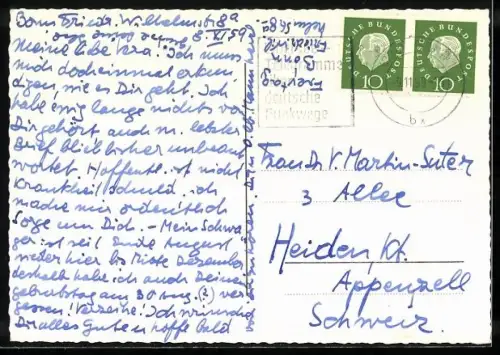 Bonn Friedr. Wilhelmstr 8a
8. XI 59
Meine liebe Vra! Ich muss
mich doch einmal erkun
digen, wie es Dir geht. Ich
habe ewig lange nichts von
Dir gehört auch m. letzter
Brief blieb bisher unbeant
wortet. Hoffentl. ist nicht
Krankheit schuld. ich
mache mir ordentlich
Sorge um Dich. – Mein Schwa
ger ist seit Ende August
wieder hier bis Mitte Dezember
deshalb habe ich auch Deinen
geburtstag am 30 Aug. (?) ver
gessen! Verzeihe! Ich wünsche
Dir alles Gute u hoffe bald
Freytag
Bonn
Friedrich
DEUTSCHE BUNDESPOST
10
DEUTSCHE BUNDESPOST
10
Deutsche
Funkwege
11
bx
Frau Dr V. Martin-Suter
3 Allee
Heiden, Kt.
Appenzell
Schweiz.